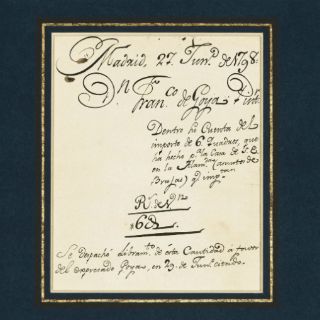 Madrid, 27. Jun.º de 1798.
Dn. Fran.co de Goya Pint
Dentro ho Cuenta del
importe de 6. Quadros, que
ha hecho p.a la Casa de S.E.
en la Alam.da (asuntos de
Brujas) q.e imp.tan
R.s de V.on
6@
Se despachó libram.to de esta Cantidad á favor
del expresado Goya, en 29. de Jun.º